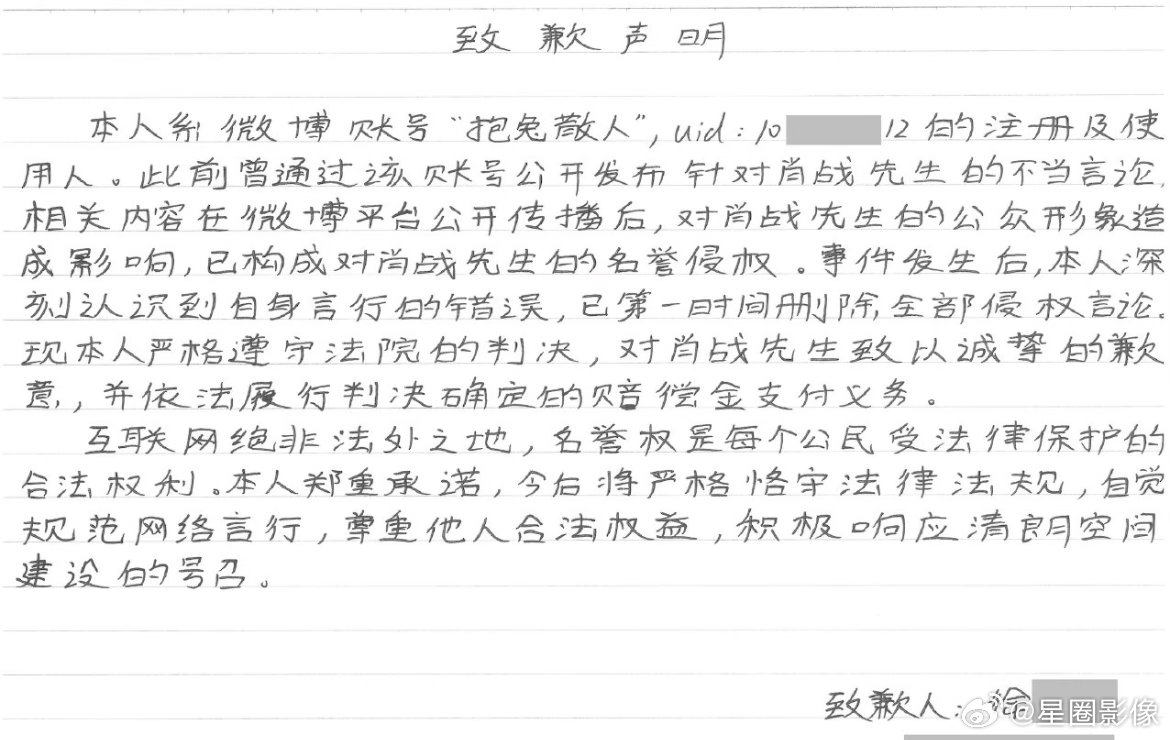 致歉声明
本人系微博账号“抱兔散人”，uid：10 12的注册及使
用人。此前曾通过该账号公开发布针对肖战先生的不当言论，
相关内容在微博平台公开传播后，对肖战先生的公众形象造
成影响，已构成对肖战先生的名誉侵权。事件发生后，本人深
刻认识到自身言行的错误，已第一时间删除全部侵权言论。
现本人严格遵守法院的判决，对肖战先生致以诚挚的歉
意，并依法履行判决确定的赔偿金支付义务。
互联网绝非法外之地，名誉权是每个公民受法律保护的
合法权利。本人郑重承诺，今后将严格恪守法律法规，自觉
规范网络言行，尊重他人合法权益，积极响应清朗空间
建设的号召。
致歉人：徐
@星圈影像